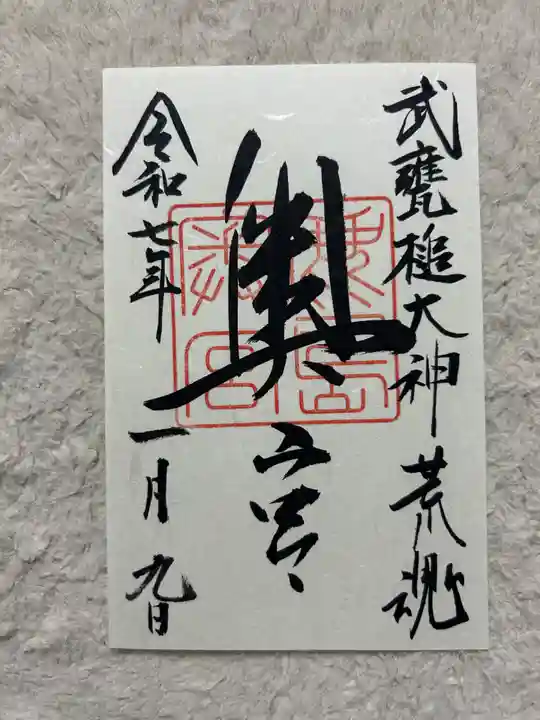 武甕槌大神荒魂
奥宮
鹿島神宮
令和七年一月九日